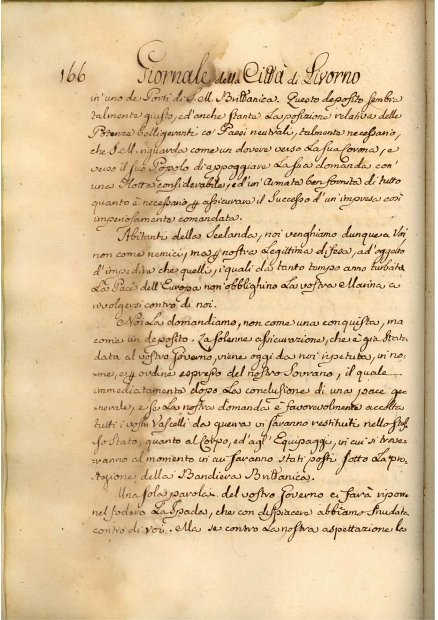 166 Giornale della Città di Livorno
in' uno de Porti di S.M. Brittanica. Questo deposito sembra
talmente giusto, ed' anche stante La posizione relativa delle
Potenze belligeranti co' Paesi neutrali, talmente necessario,
che S.M. riguarda come un dovere verso La sua Corona, e
verso il suo Popolo di appoggiare La sua domanda con'
una Flotta considerabile, e d'un' Armata ben fornita di tutto
quanto è necessario p assicurare il Successo d'un' impresa così
imperiosamente comandata.
Abitanti della Seelanda, noi venghiamo dunque a Voi
non come nemici, ma p nostra Legittima difesa, ad' oggetto
d'impedire che quelli, i quali da tanto tempo anno turbata
La Pace dell'Europa non' obblighino La vostra Marina a
rivolgersi contro di noi.
Noi La domandiamo, non come una conquista, ma
come un deposito. La solenne assicurazione, che è già stata
data al vostro Governo, viene oggi da noi ripetuta, in' no-
me, e p ordine espresso del nostro Sovrano, il quale
immediatamente dopo La conclusione di una pace ge-
nerale, e se La nostra domanda è favorevolmente accolta
tutti i vostri Vascelli da guerra vi saranno restituiti nello stes-
so Stato, quanto al Corpo, ed' agl' Equipaggi, in cui si trove-
ranno al momento in cui saranno stati posti sotto La pro-
tezione della Bandiera Brittanica.
Una sola parola del vostro Governo ci farà riporre
nel fodero La Spada, che con dispiacere abbiamo snudata
contro di voi. Ma se contro La nostra aspettazione le